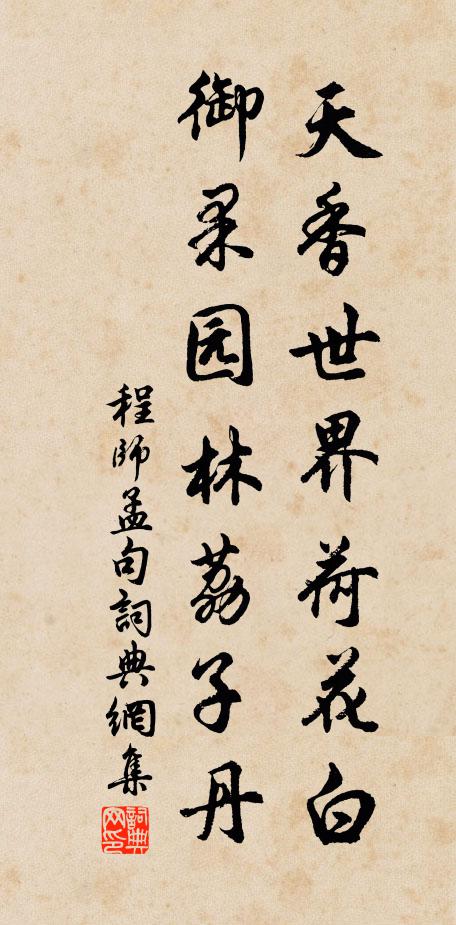 天香世界荷花白
御果园林荔子丹
程師孟句詞典網集
詞典网印